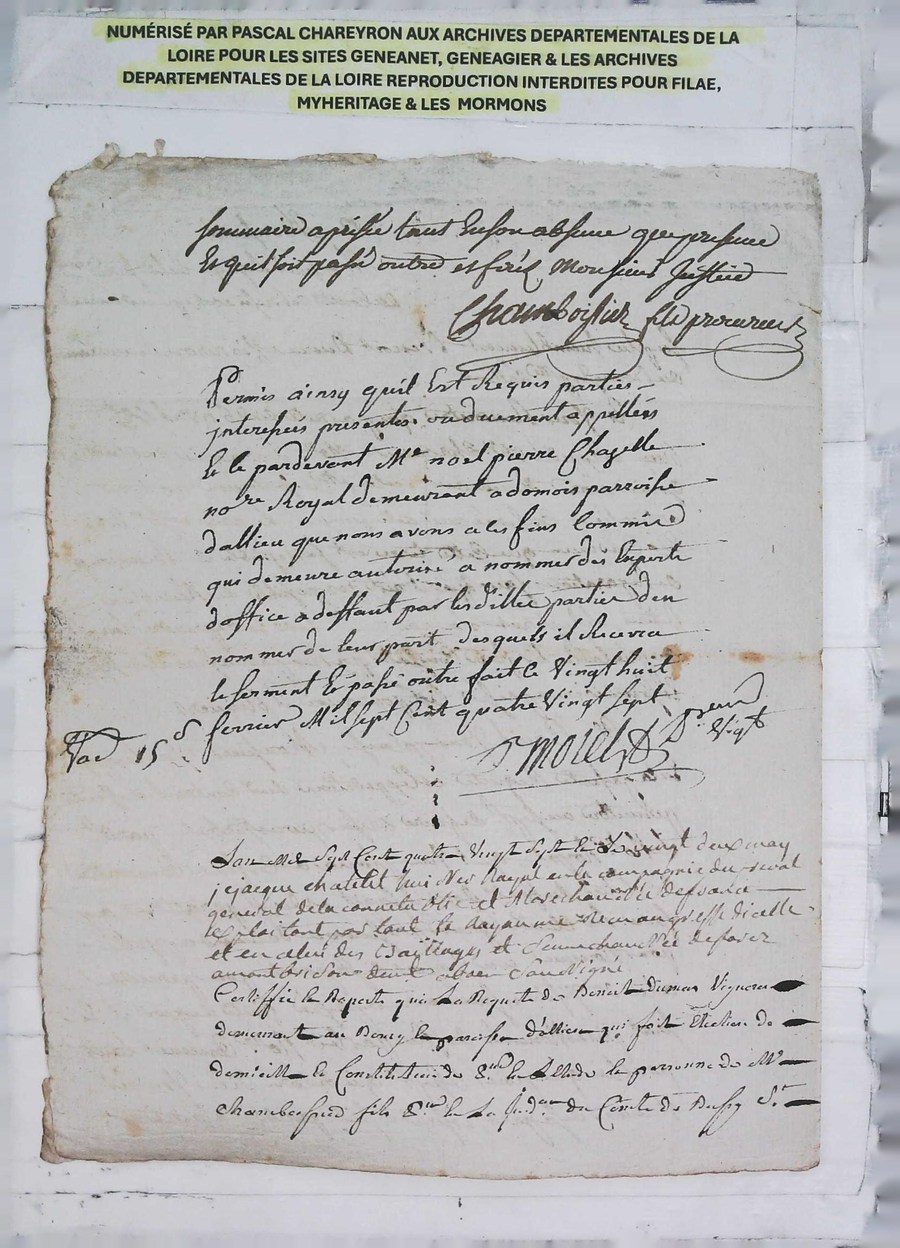 NUMÉRISÉ PAR PASCAL CHAREYRON AUX ARCHIVES DEPARTEMENTALES DE LA
LOIRE POUR LES SITES GENEANET, GENEAGIER & LES ARCHIVES
DEPARTEMENTALES DE LA LOIRE REPRODUCTION INTERDITES POUR FILAE,
MYHERITAGE & LES MORMONS
sommaire aprisie tant en son absence que presence
Et quil soit passé outre et ferez Monsieur Justice
Chamboissier fils procureur
Permis ainsy quil Est Requis parties
interessés presentes ou duement appellées
Et ce pardevant Me noel pierre Chazelle
nore Royal demeurant a domois parroisse
dallieu que nous avons a ces fins Commis
qui demeure autorisé a nommer des Experts
doffice a deffaut par lesdittes parties den
nommer de leur part desquels il Recevra
le serment Et passé outre fait ce Vingt huit
fevrier Mil sept Cent quatre Vingt sept
Vac 15 s
Morel
Lan Mil Sept Cent quatre Vingt Sept le vingt deux may
je jacque chatelet huissier Royal en la compagnie du
general de la connetablie et Marechaussée de france
Exploitant par tout le Royaume au greffe dicelle
et en celui des Bailliages et Senechaussée de forez
a montbrison
Certiffie le Raporte qu'a La Requete de Benoit Dumas Vigneron
demeurant au Bourg le paroisse d'allieu qui fait Election de
domicille le Constitution de le de la personne de Me
Chamboissier fils du Comté de Bussy St